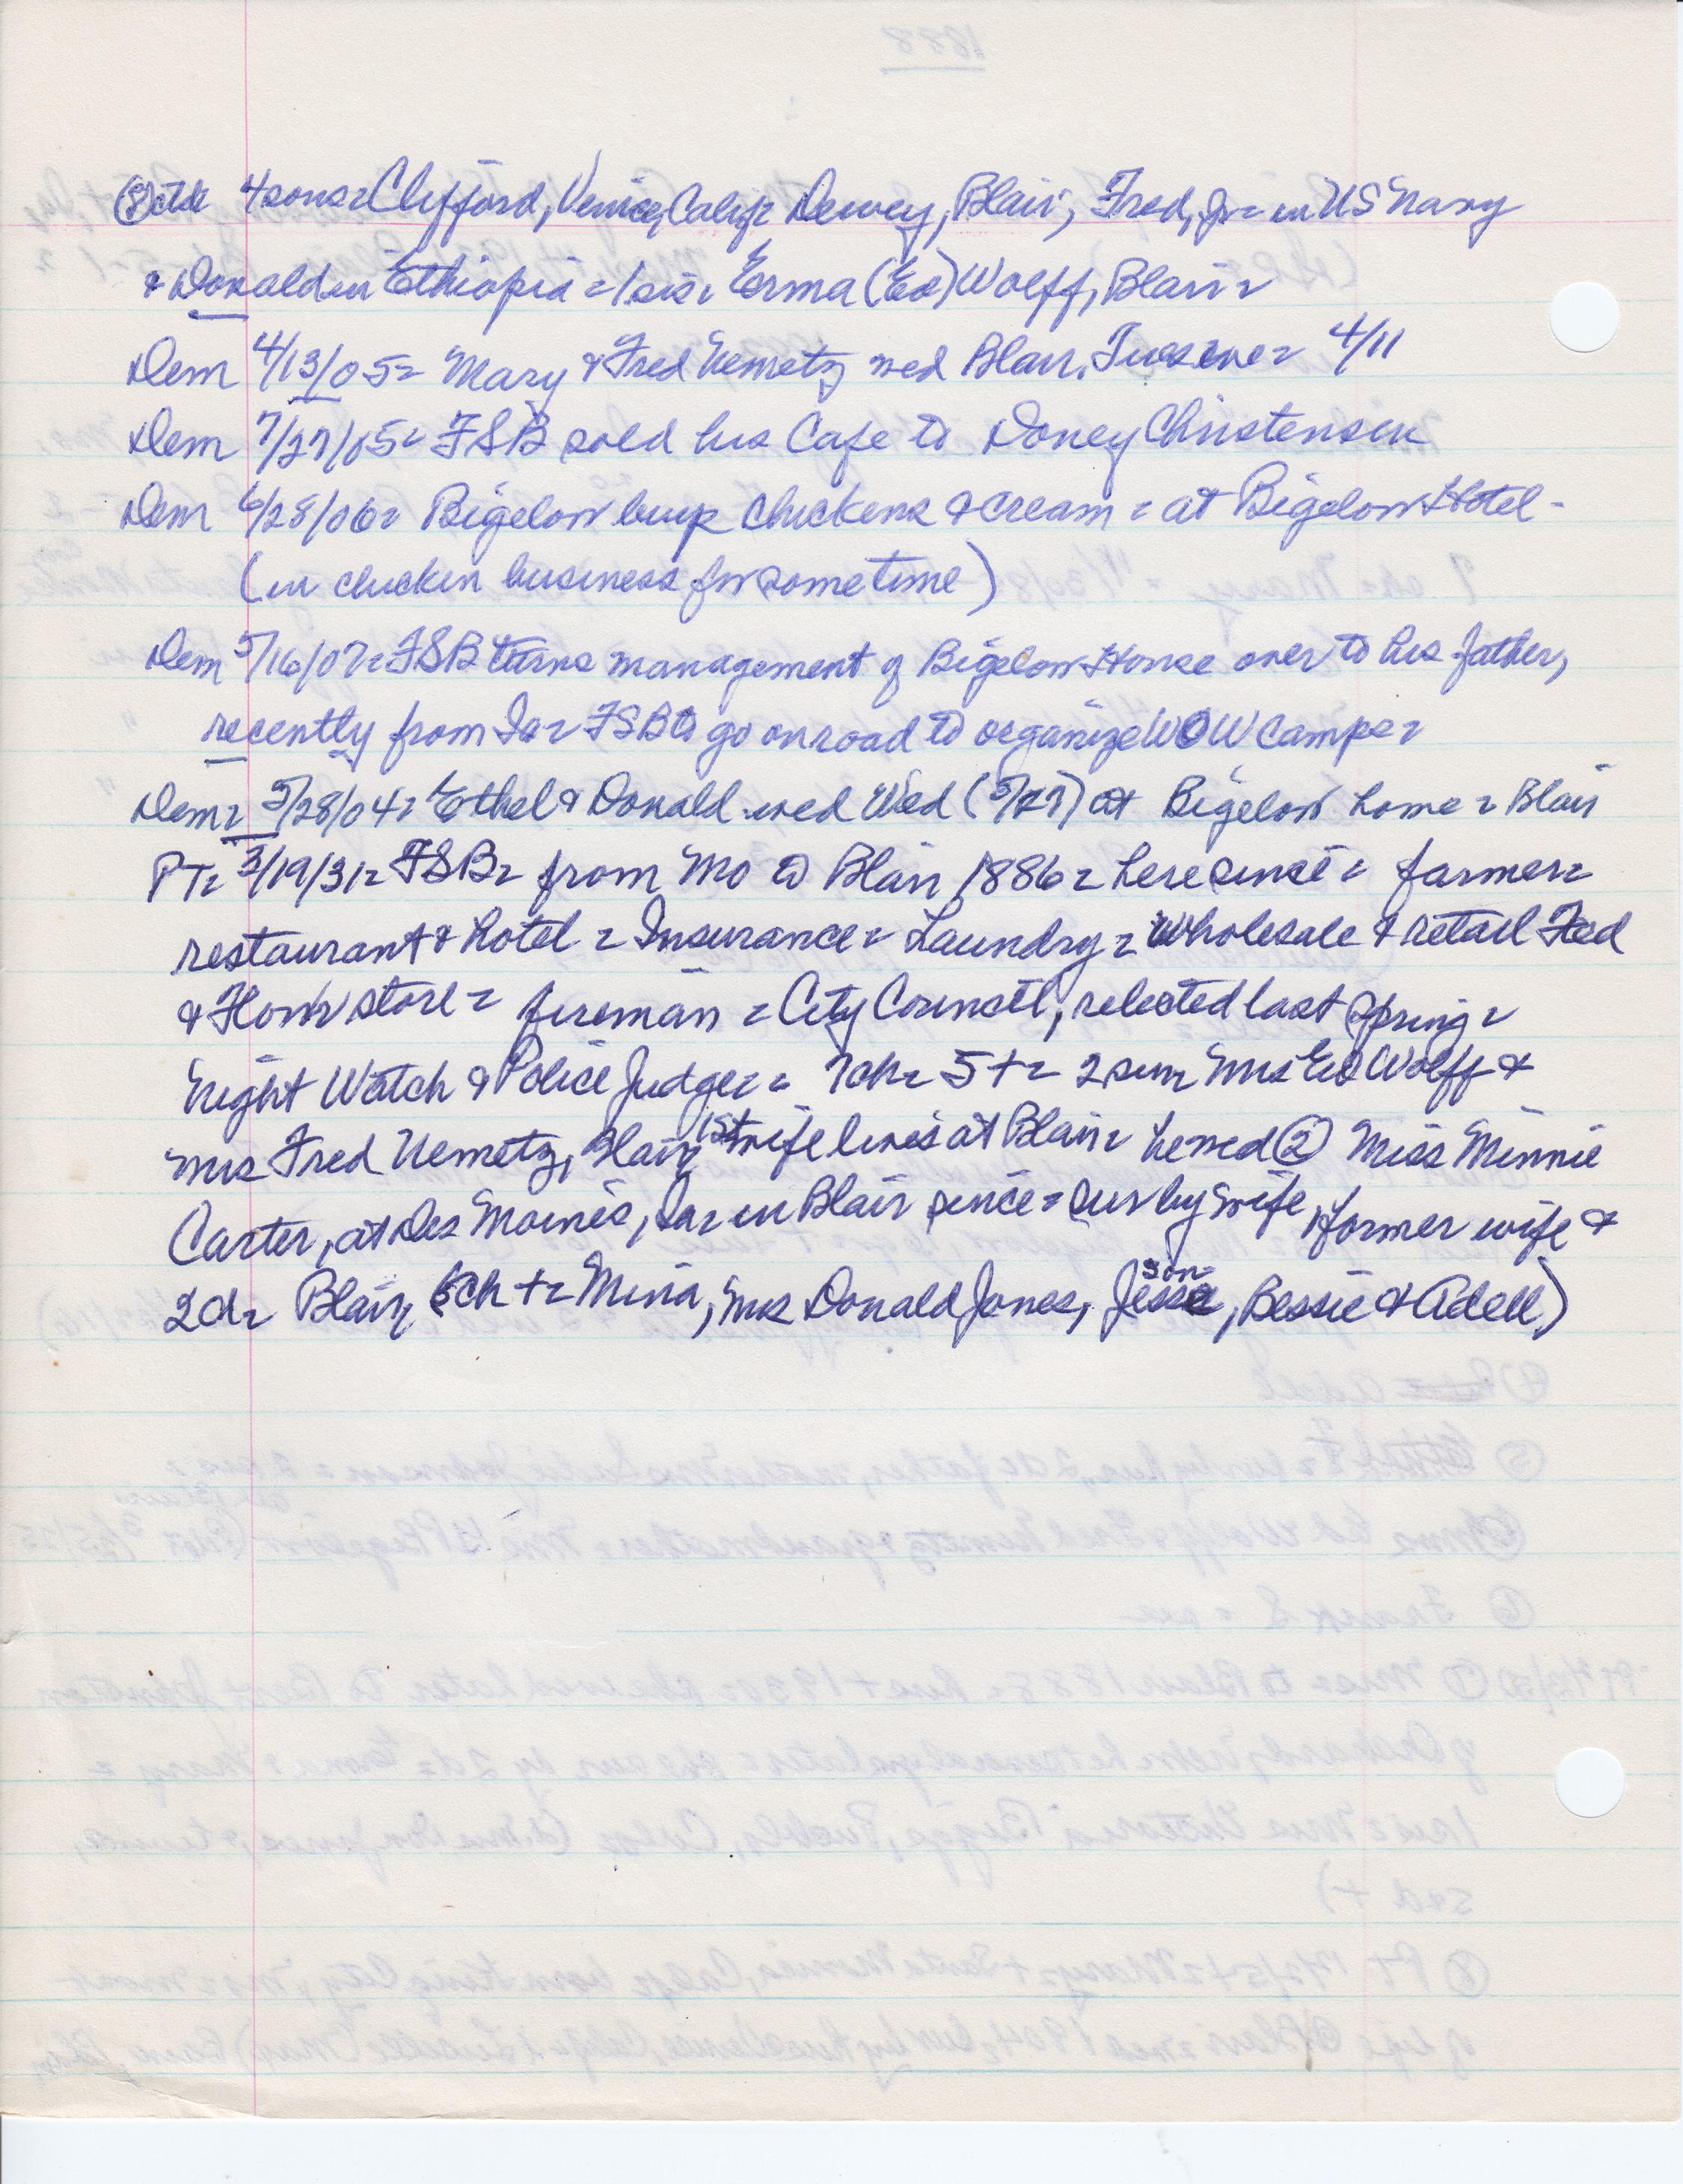 ⑧ctd= 4 sons= Clifford, Venice, Calif= Dewey, Blair, Fred, Jr= in US Navy
& Donald in Ethiopia = 1 sis= Erma (Ed) Wolff, Blair=
Dem 4/13/05= Mary & Fred Nemetz wed Blair, Tues eve= 4/11
Dem 7/27/05= FSB sold his Cafe to Doney Christensen
Dem 6/28/06= Bigelow buys chickens & cream = at Bigelow Hotel-
(in chicken business for some time)
Dem 5/16/07= FSB turns management of Bigelow House over to his father,
recently from Ia= FSB to go on road to organize WOW Camps=
Dem= 5/28/04= Ethel & Donald wed Wed (5/27) at Bigelow home = Blair
PT= 3/19/31= FSB= from Mo to Blair 1886= here since = farmer=
restaurant & hotel = Insurance = Laundry = Wholesale & retail Feed
& Flour store = fireman = City Council, relected last Spring =
Night Watch & Police Judge= = 7ch= 5+= 2 surv Mrs Ed Wolff &
Mrs Fred Nemetz, Blair, 1st wife lives at Blair= he wed ② Miss Minnie
Carter, at Des Moines, Ia= in Blair since = sur by wife, former wife &
2d= Blair, 5ch += Mina, Mrs Donald Jones, Jesse, son= Bessie & Adell)